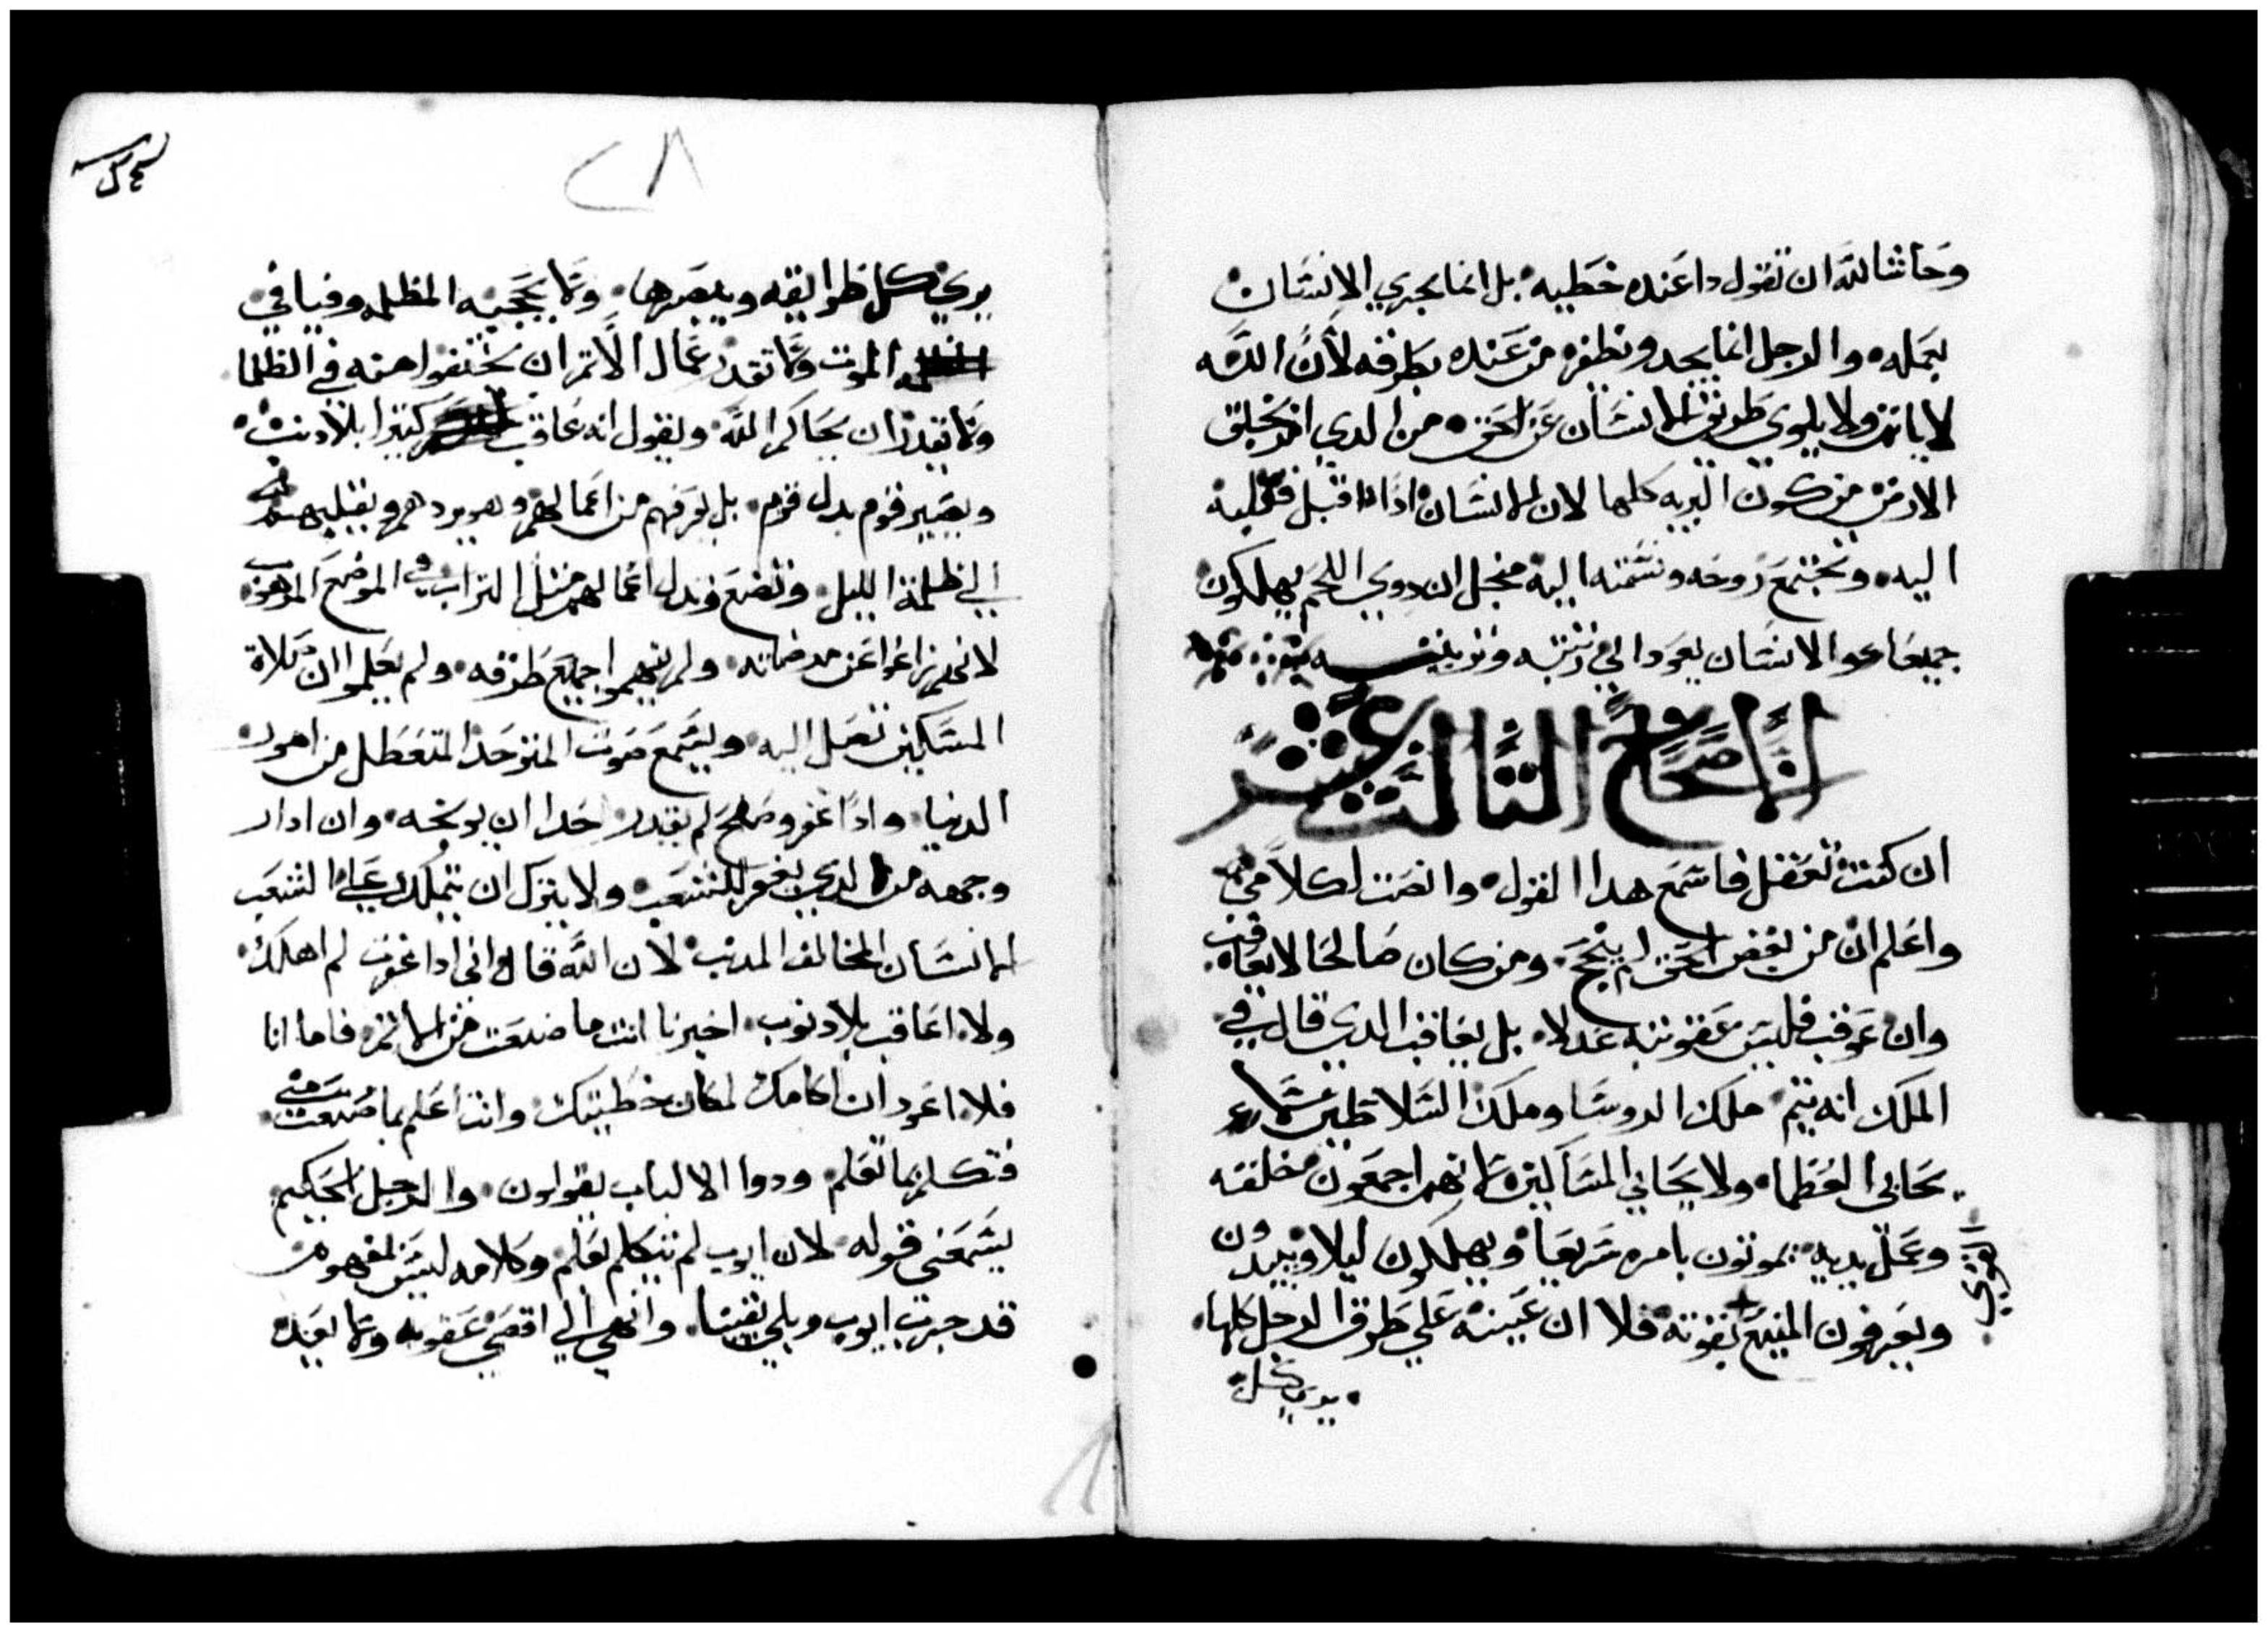 وحاشا لله ان تقول دا عنده خطيه بل انما يجري الانسان
بعمله والرجل انما يجد ونظفره من عنده بطرقه لأن الله
لا ياثم ولا يلوي طريق الانسان عن الحق من الدي اخد يخلق
الارض من كون البريه كلها لان الانسان ادا اقبل قلبه
اليه وتجتمع روحه ونسمته اليه منجل ان دوي اللحم يهلكون
جميعا هوا الانسان يعود الي رتبته وتربيته
الاصحاح الثالث عشر
ان كنت تعقل فاسمع هدا القول وانصت لكلامي
واعلم ان من بغض الحق لم ينجح ومن كان صالحا لا يعاقب
وان عوقب فليس عقوبته عدلا بل يعاقب الدي قال في
الملك انه يتم ملك الروسا وملك السلاطين
يحابي العظما ولا يحابي المساكين لانهم اجمعون خلقته
وعمل يديه يموتون بامره سريعا ويهلكون ليلا ويبيدون
ويعرفون المنيع بقوته فلا ان عينه علي طرق الرجل كلها
القوي
يري كل
٢٨
يري كل طرايقه ويبصرها ولا يحجبه المظلمه وفيافي
الموت ولا تقدر عمال الاتم ان يختفوا منه في الظلما
ولا يقدر ان يحاكم الله ويقول انه عاقب كتيرا بلا دنب
ويصير قوم بدل قوم بل يعرفهم من اعمالهم وهو يردهم ويقلبهم
الي ظلمة الليل وتضع وتدل اعمالهم مثل التراب في الموضع المرهوب
لانهم زاغوا عن مرضاته ولم يفهموا جميع طرقه ولم يعلموا ان صلاة
المساكين تصل اليه ويسمع صوت المتوحد المتعطل من امور
الدنيا وادا غفر وصفح لم يقدر احدا ان يوبخه وان ادار
وجهه من الدي يغفر للشعب ولا يترك ان يتملك علي الشعب
الانسان المخالف المدنب لان الله قال اني ادا غفرت لم اهلك
ولا اعاقب بلا دنوب اخبرنا انت ما صنعت من الاتم فاما انا
فلا اعود ان اكامك لمكان خطيتك وانت اعلم بما صنعت مني
فتكلم بما تعلم ودوا الالباب يقولون والرجل الحكيم
يسمعني قوله لان ايوب لم يتكلم بعلم وكلامه ليس بمفهوم
قد جرب ايوب وبلي نفسا وانهي الي اقصي عقوبه ولا يعيده